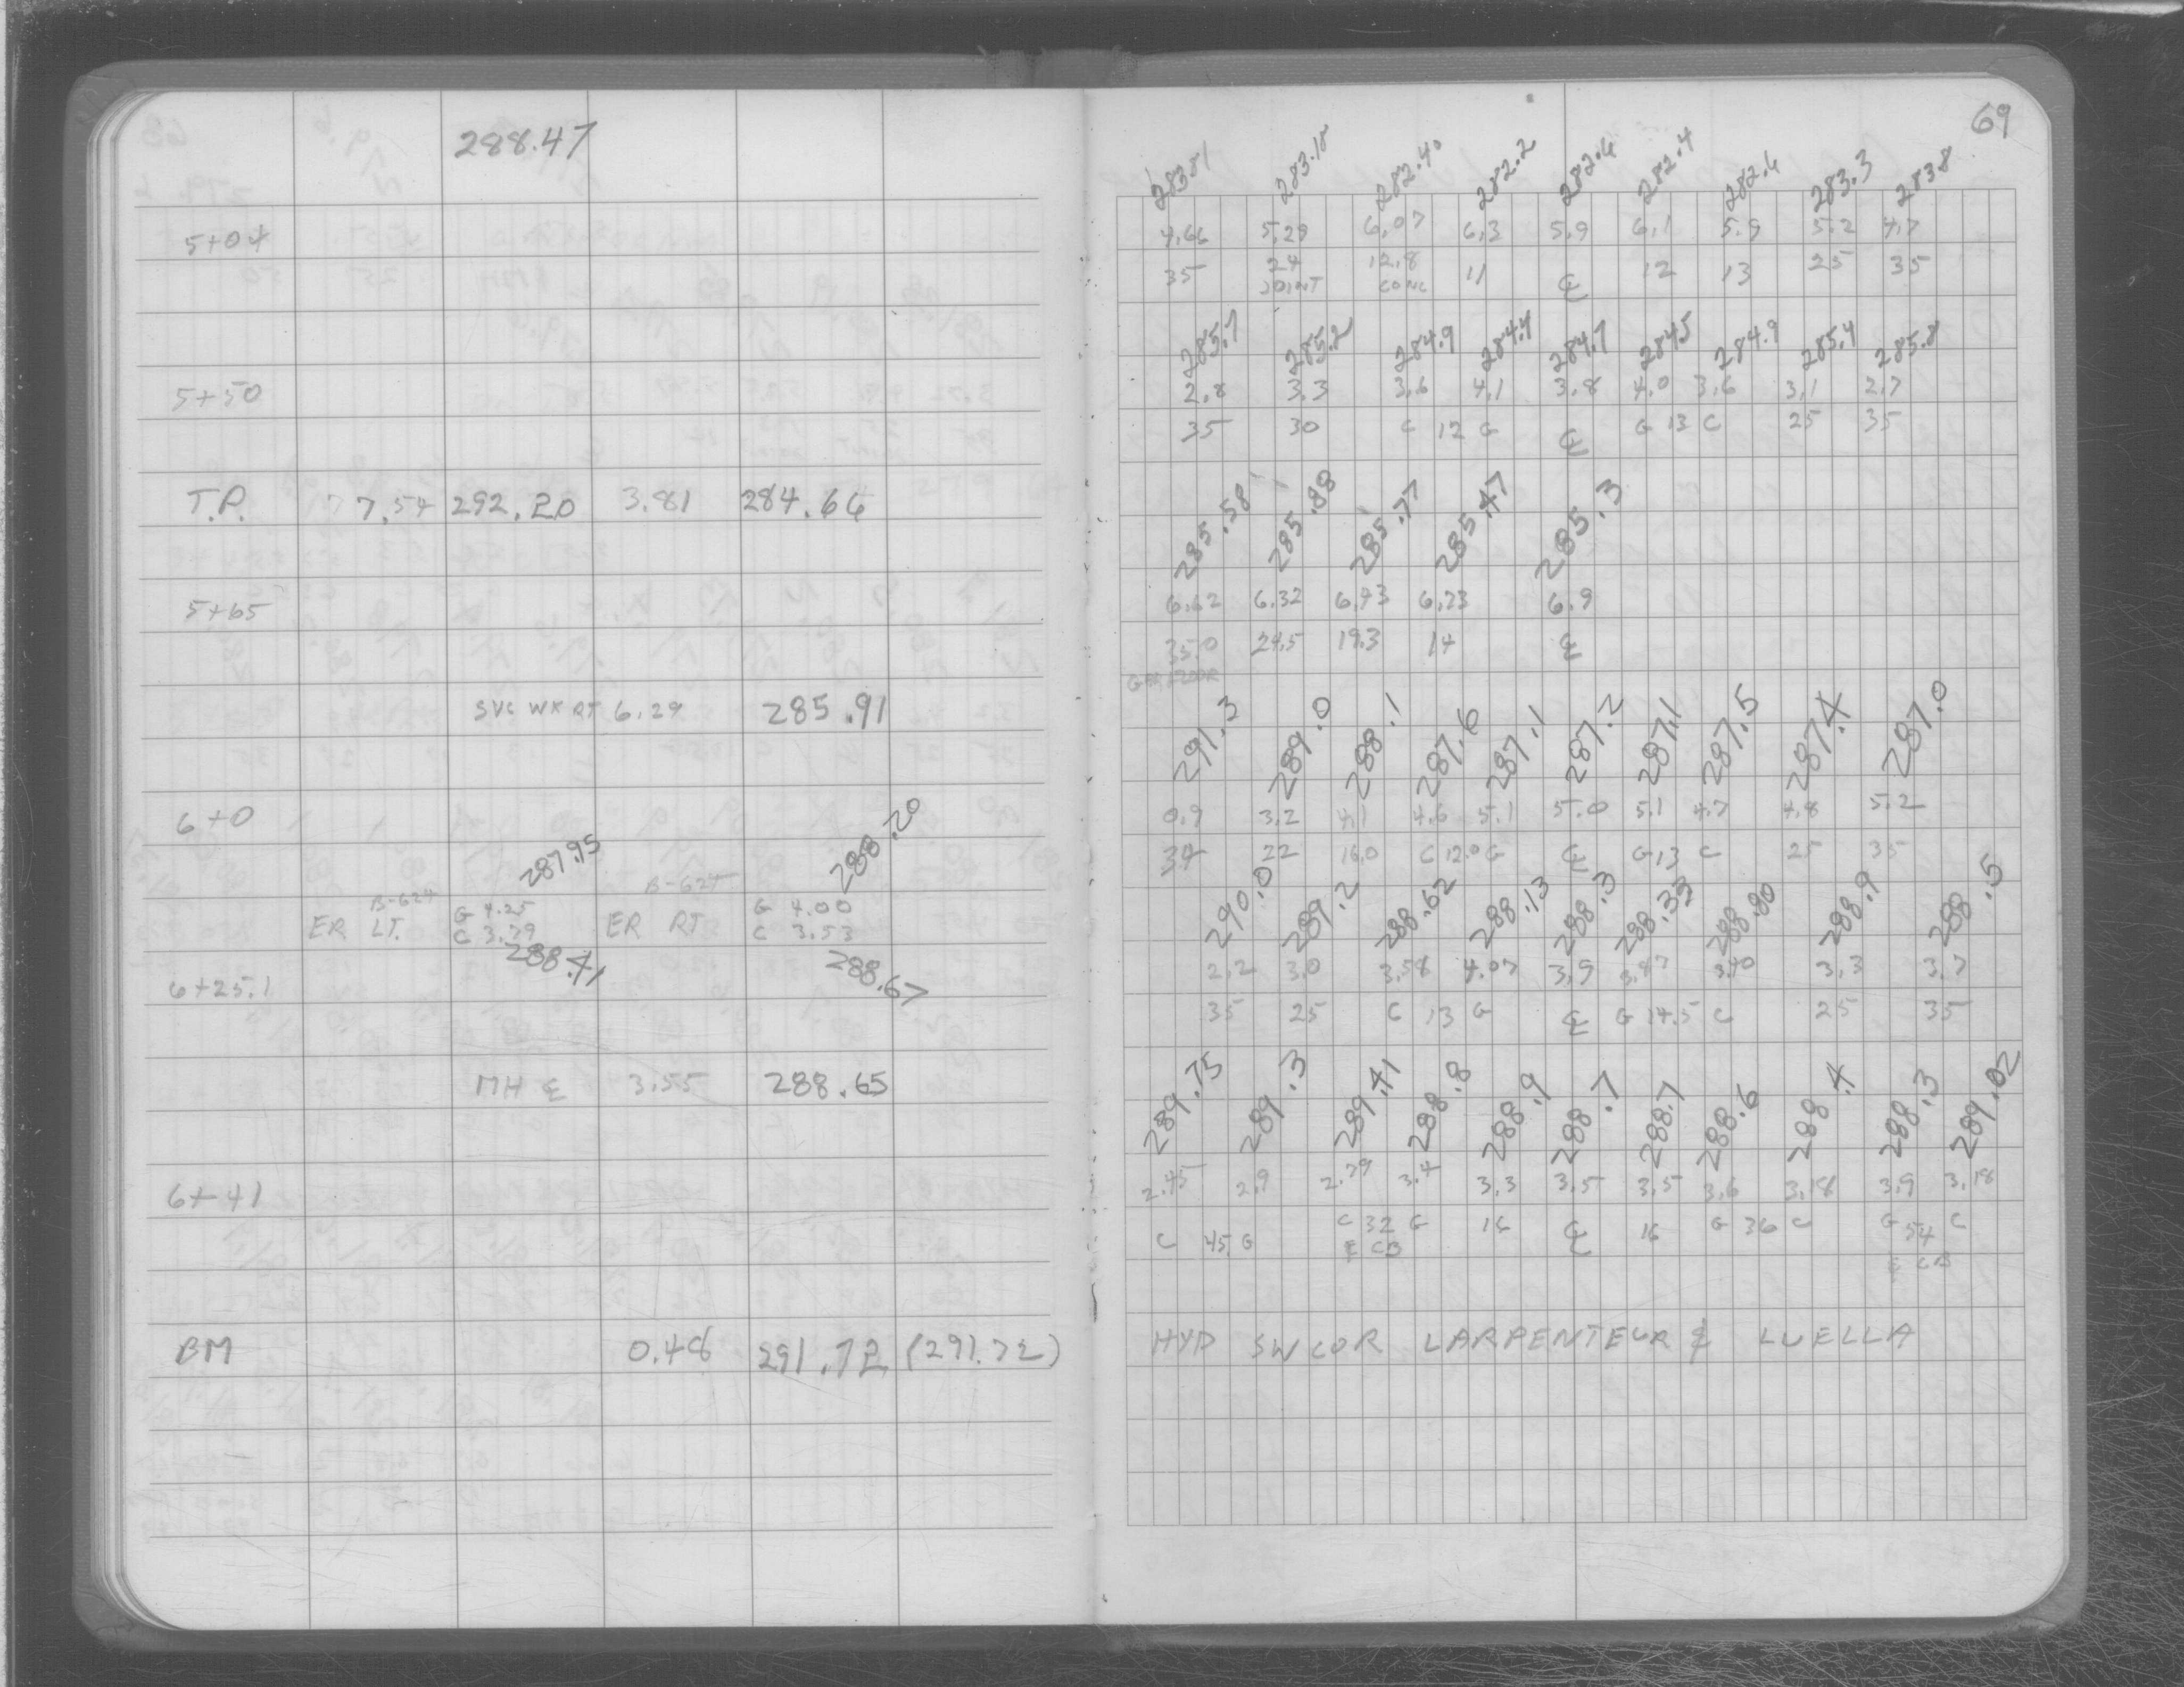 288.47
5+04
5+50
T.P. 7.54 292.20 3.81 284.66
5+65
SVC WK RT 6.29 285.91
6+0
287.95 288.20
B-624 B-624
ER LT. G 4.25 ER RT G 4.00
C 3.79 C 3.53
288.41 288.67
6+25.1
MH ℄ 3.55 288.65
6+41
BM 0.48 291.72 (291.72)
69
283.81 283.18 282.40 282.2 282.6 282.4 282.6 283.3 283.8
4.66 5.29 6.07 6.3 5.9 6.1 5.9 5.2 4.7
35 24 12.8 11 ℄ 12 13 25 35
JOINT CONC
285.7 285.2 284.9 284.4 284.7 284.5 284.9 285.4 285.8
2.8 3.3 3.6 4.1 3.8 4.0 3.6 3.1 2.7
35 30 C 12 G ℄ G 13 C 25 35
285.58 285.88 285.77 285.47 285.3
6.62 6.32 6.43 6.73 6.9
35.0 24.5 19.3 14 ℄
291.3 289.0 288.1 287.6 287.1 287.2 287.1 287.5 287.4 287.0
0.9 3.2 4.1 4.6 5.1 5.0 5.1 4.7 4.8 5.2
34 22 16.0 C 12.0 G ℄ G 13 C 25 35
290.0 289.2 288.62 288.13 288.3 288.33 288.80 288.9 288.5
2.2 3.0 3.58 4.07 3.9 3.87 3.40 3.3 3.7
35 25 C 13 G ℄ G 14.5 C 25 35
289.75 289.3 289.41 288.8 288.9 288.7 288.7 288.6 288.4 288.3 289.02
2.45 2.9 2.79 3.4 3.3 3.5 3.5 3.6 3.18 3.9 3.18
C 45 G C 32 G 16 ℄ 16 G 36 C G 54 C
℄ CB ℄ CB
HYD SW COR LARPENTEUR & LUELLA